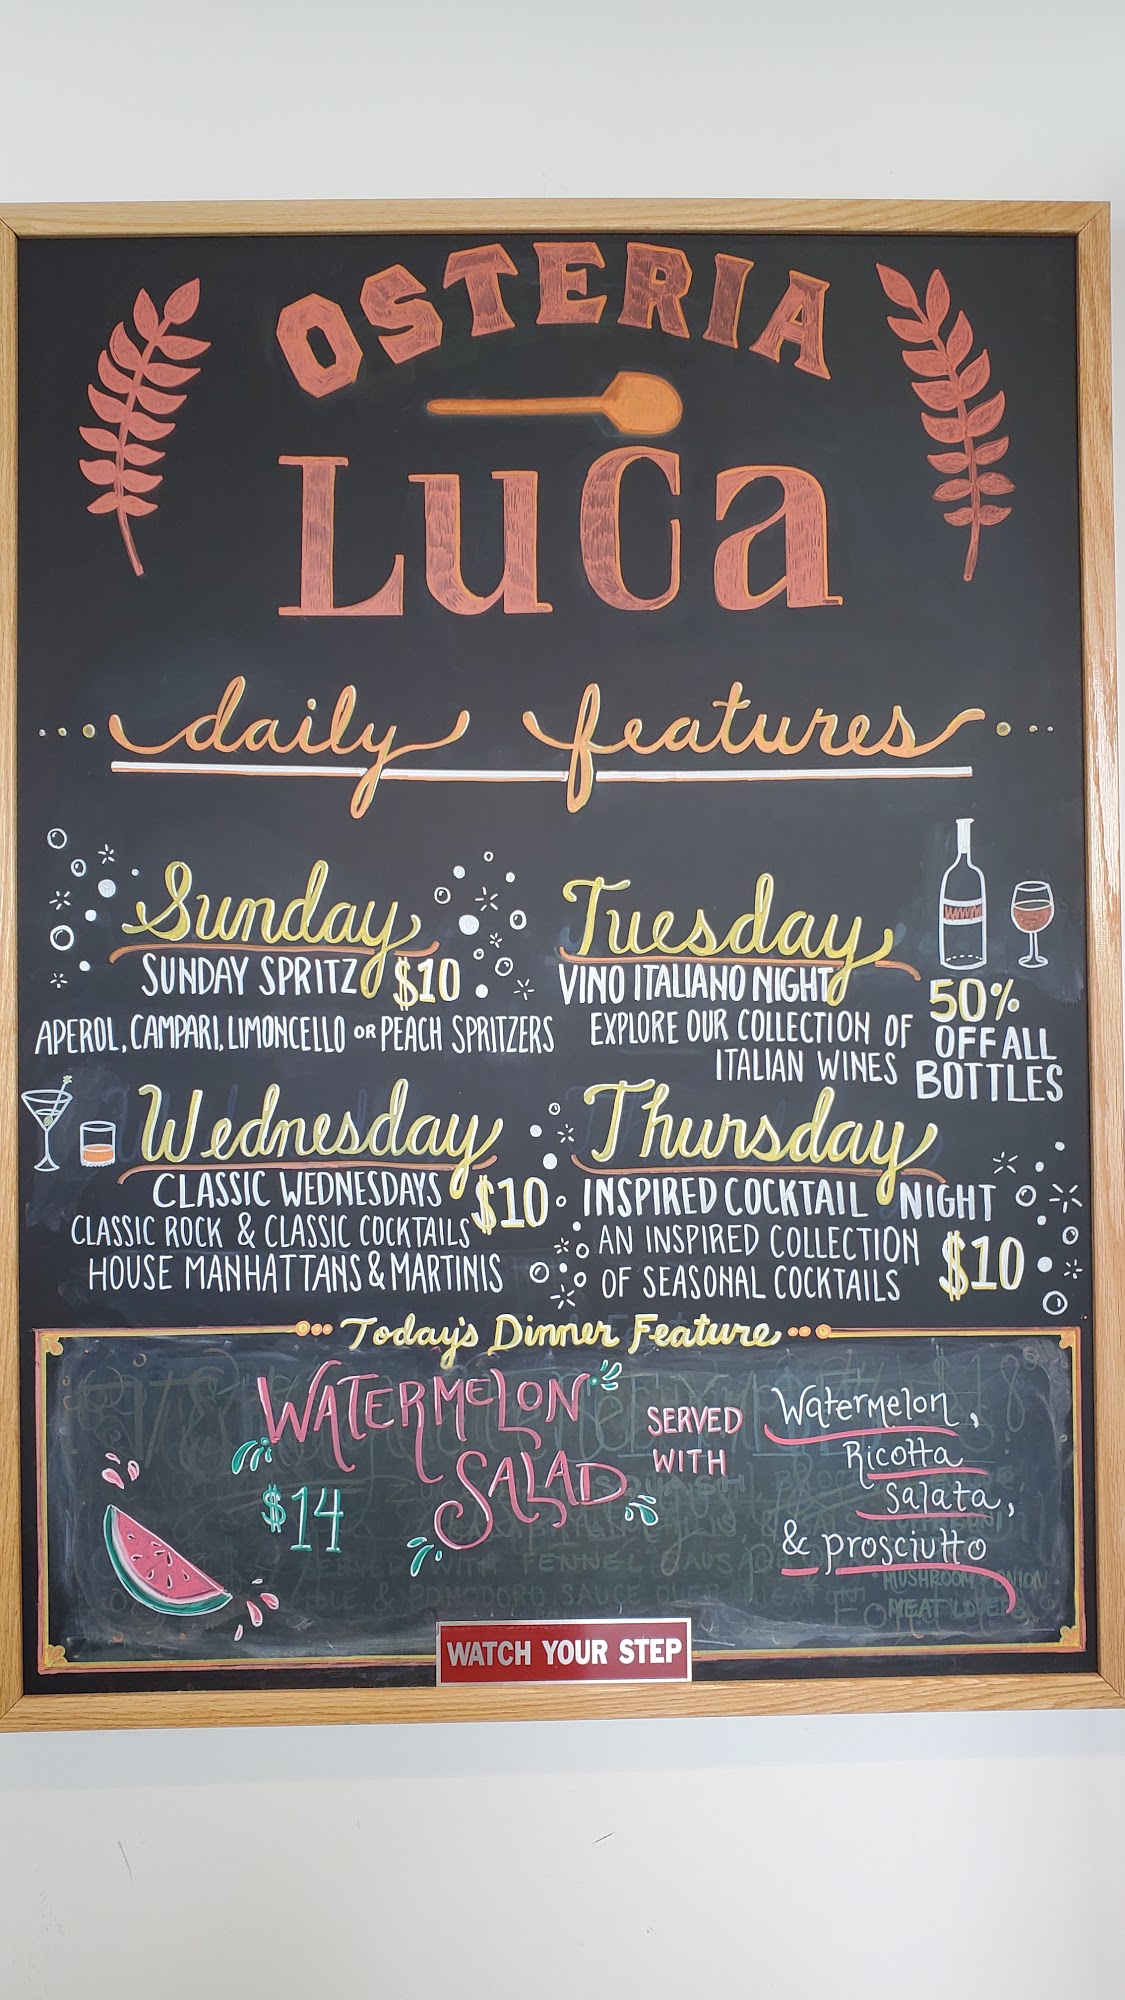 OSTERIA
LuCa
daily features
Sunday
SUNDAY SPRITZ $10
APEROL, CAMPARI, LIMONCELLO OR PEACH SPRITZERS
Tuesday
VINO ITALIANO NIGHT
EXPLORE OUR COLLECTION OF
ITALIAN WINES
50%
OFF ALL
BOTTLES
Wednesday
CLASSIC WEDNESDAYS $10
CLASSIC ROCK & CLASSIC COCKTAILS
HOUSE MANHATTANS & MARTINIS
Thursday
INSPIRED COCKTAIL NIGHT
AN INSPIRED COLLECTION
OF SEASONAL COCKTAILS
$10
Today's Dinner Feature
WATERMELON
SALAD
$14
SERVED
WITH
Watermelon,
Ricotta
Salata,
& prosciutto
MUSHROOM
MEAT LOVERS
WATCH YOUR STEP